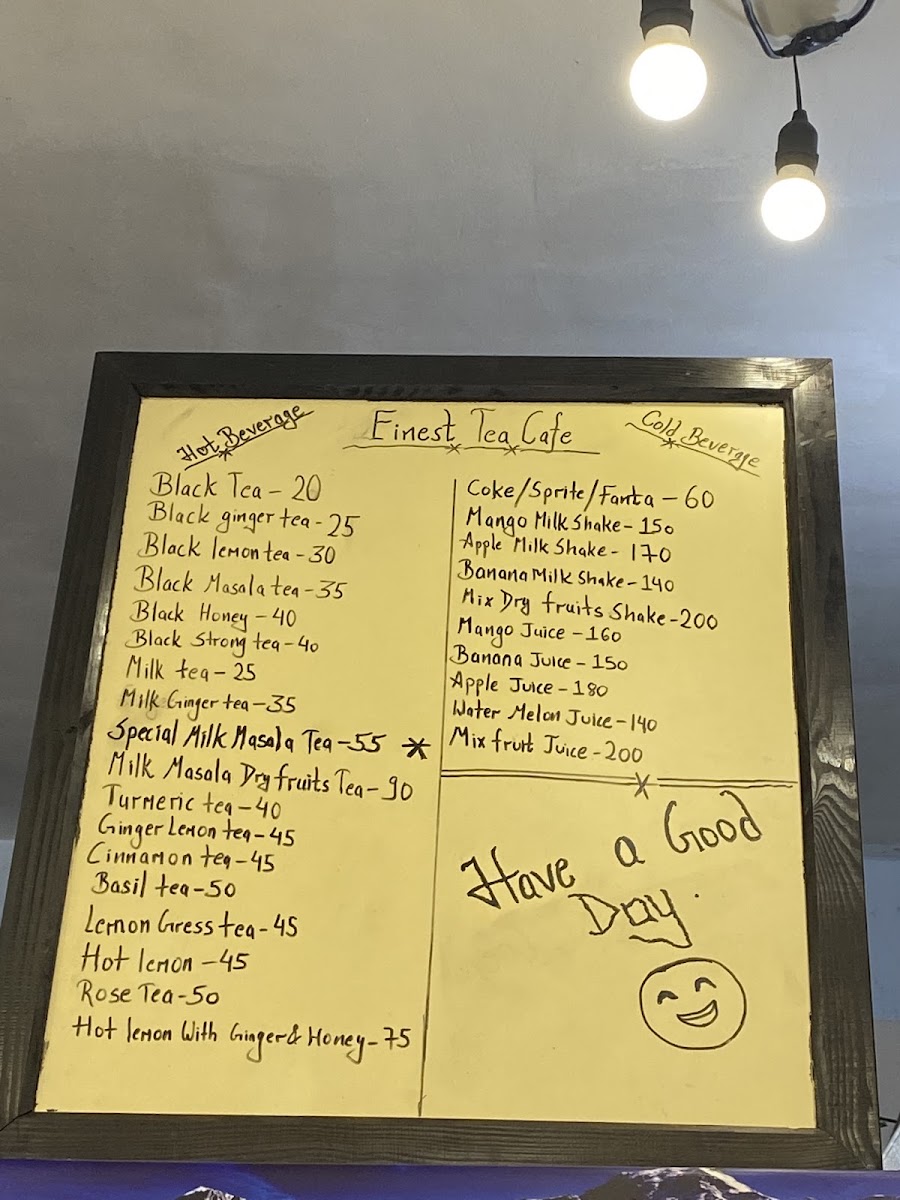 Finest Tea Cafe
Hot Beverage
Black Tea - 20
Black ginger tea - 25
Black lemon tea - 30
Black Masala tea - 35
Black Honey - 40
Black Strong tea - 40
Milk tea - 25
Milk Ginger tea - 35
Special Milk Masala Tea - 55 *
Milk Masala Dry fruits Tea - 90
Turmeric tea - 40
Ginger Lemon tea - 45
Cinnamon tea - 45
Basil tea - 50
Lemon Gress tea - 45
Hot lemon - 45
Rose Tea - 50
Hot lemon With Ginger & Honey - 75
Cold Beverage
Coke/Sprite/Fanta - 60
Mango Milk Shake - 150
Apple Milk Shake - 170
Banana Milk Shake - 140
Mix Dry fruits Shake - 200
Mango Juice - 160
Banana Juice - 150
Apple Juice - 180
Water Melon Juice - 140
Mix fruit Juice - 200
Have a Good
Day.